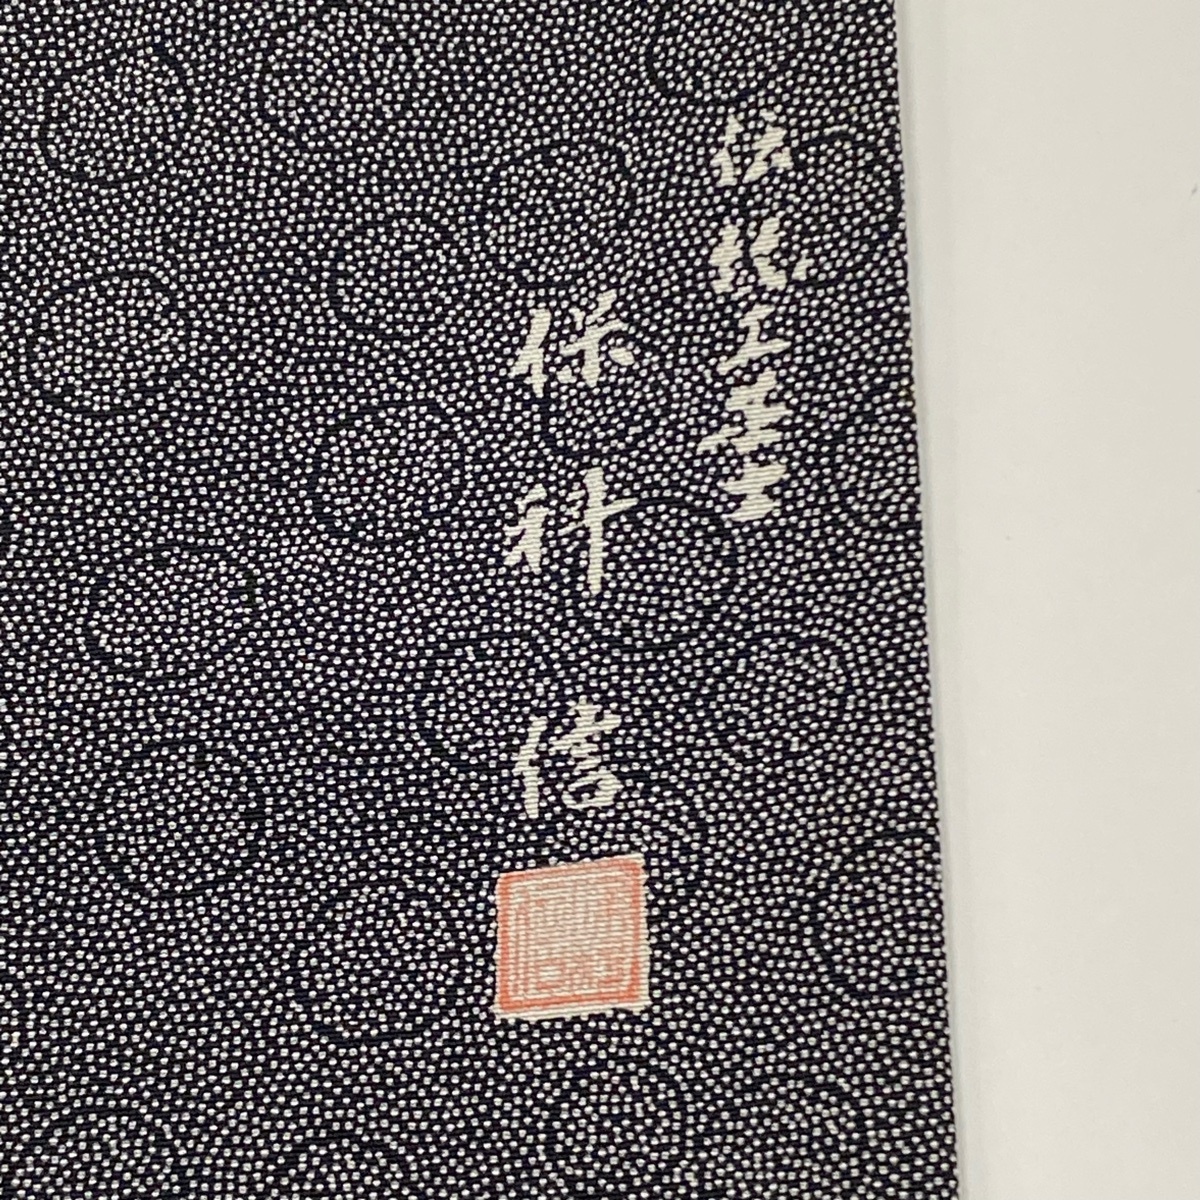 伝統工芸士
保科信